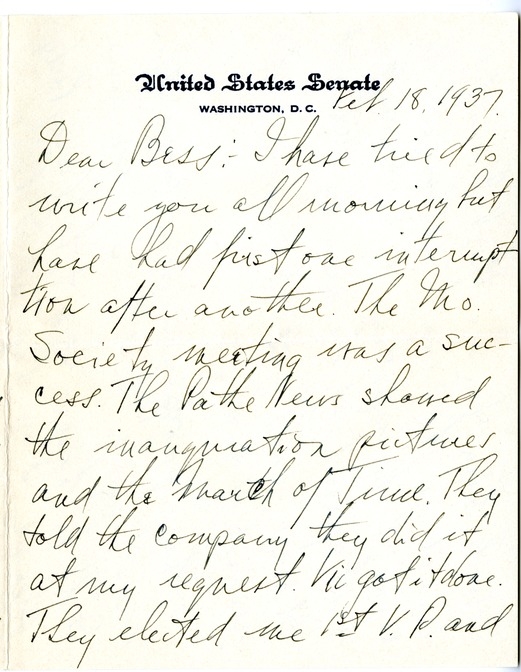 United States Senate
WASHINGTON, D. C.
Feb. 18, 1937.
Dear Bess:- I have tried to
write you all morning but
have had first one interrupt
tion after another. The Mo.
Society meeting was a suc-
cess. The Pathe News showed
the inauguration pictures
and the March of Time. They
told the company they did it
at my request. Vic got it done.
They elected me 1st V. P. and